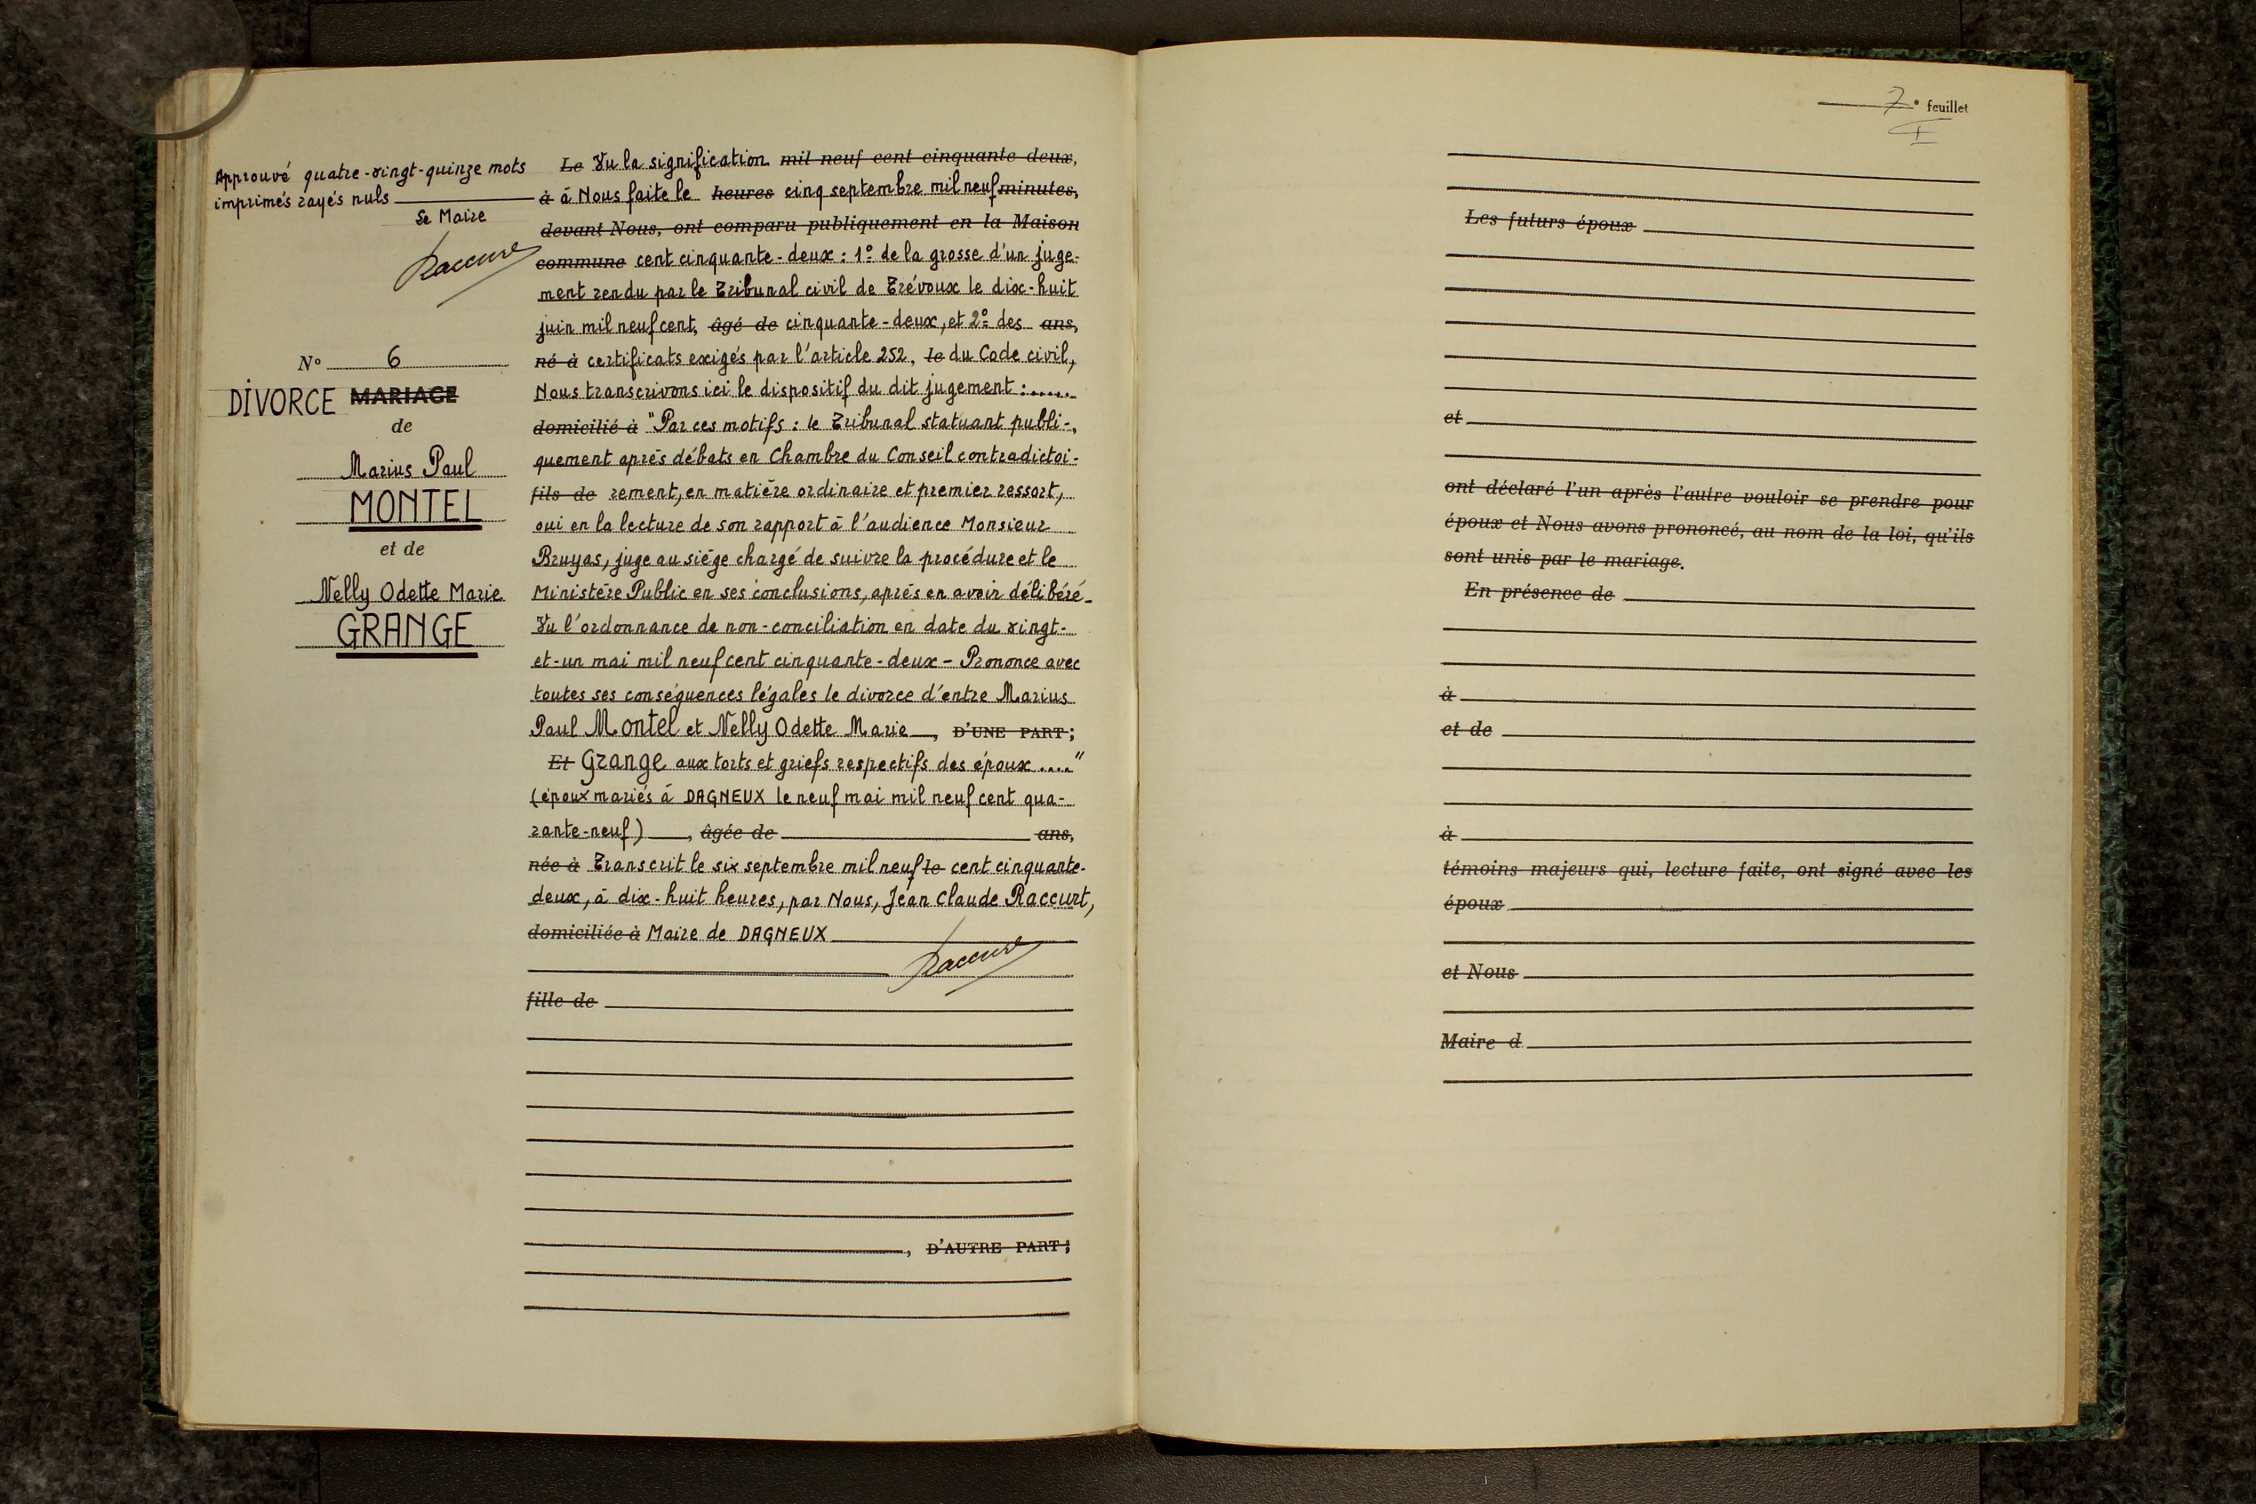 Approuvé quatre-vingt-quinze mots
imprimés rayés nuls
Le Maire
Raccurt
N° 6
DIVORCE MARIAGE
de
Marius Paul
MONTEL
et de
Nelly Odette Marie
GRANGE
Le Vu la signification mil neuf cent cinquante deux,
à à Nous faite le heures cinq septembre mil neuf minutes,
devant Nous, ont comparu publiquement en la Maison
commune cent cinquante-deux : 1° de la grosse d'un juge-
ment rendu par le Tribunal civil de Trévoux le dix-huit
juin mil neuf cent, âgé de cinquante-deux, et 2° des ans,
né à certificats exigés par l'article 252, le du Code civil,
Nous transcrivons ici le dispositif du dit jugement :......
domicilié à "Par ces motifs : le Tribunal statuant publi-,
quement après débats en Chambre du Conseil contradictoi-
fils de rement, en matière ordinaire et premier ressort,
oui en la lecture de son rapport à l'audience Monsieur
Bruyas, juge au siège chargé de suivre la procédure et le
Ministère Public en ses conclusions, après en avoir délibéré-
Vu l'ordonnance de non-conciliation en date du vingt-
et-un mai mil neuf cent cinquante-deux - Prononce avec
toutes ses conséquences légales le divorce d'entre Marius
Paul Montel et Nelly Odette Marie, D'UNE PART ;
Et Grange aux torts et griefs respectifs des époux ...."
(époux mariés à DAGNEUX le neuf mai mil neuf cent qua-
rante-neuf), âgée de ans,
née à Transcrit le six septembre mil neuf le cent cinquante-
deux, à dix-huit heures, par Nous, Jean Claude Raccurt,
domiciliée à Maire de DAGNEUX
Raccurt
fille de
, D'AUTRE PART ;
7e feuillet
Les futurs époux
et
ont déclaré l'un après l'autre vouloir se prendre pour
époux et Nous avons prononcé, au nom de la loi, qu'ils
sont unis par le mariage.
En présence de
à
et de
à
témoins majeurs qui, lecture faite, ont signé avec les
époux
et Nous
Maire d